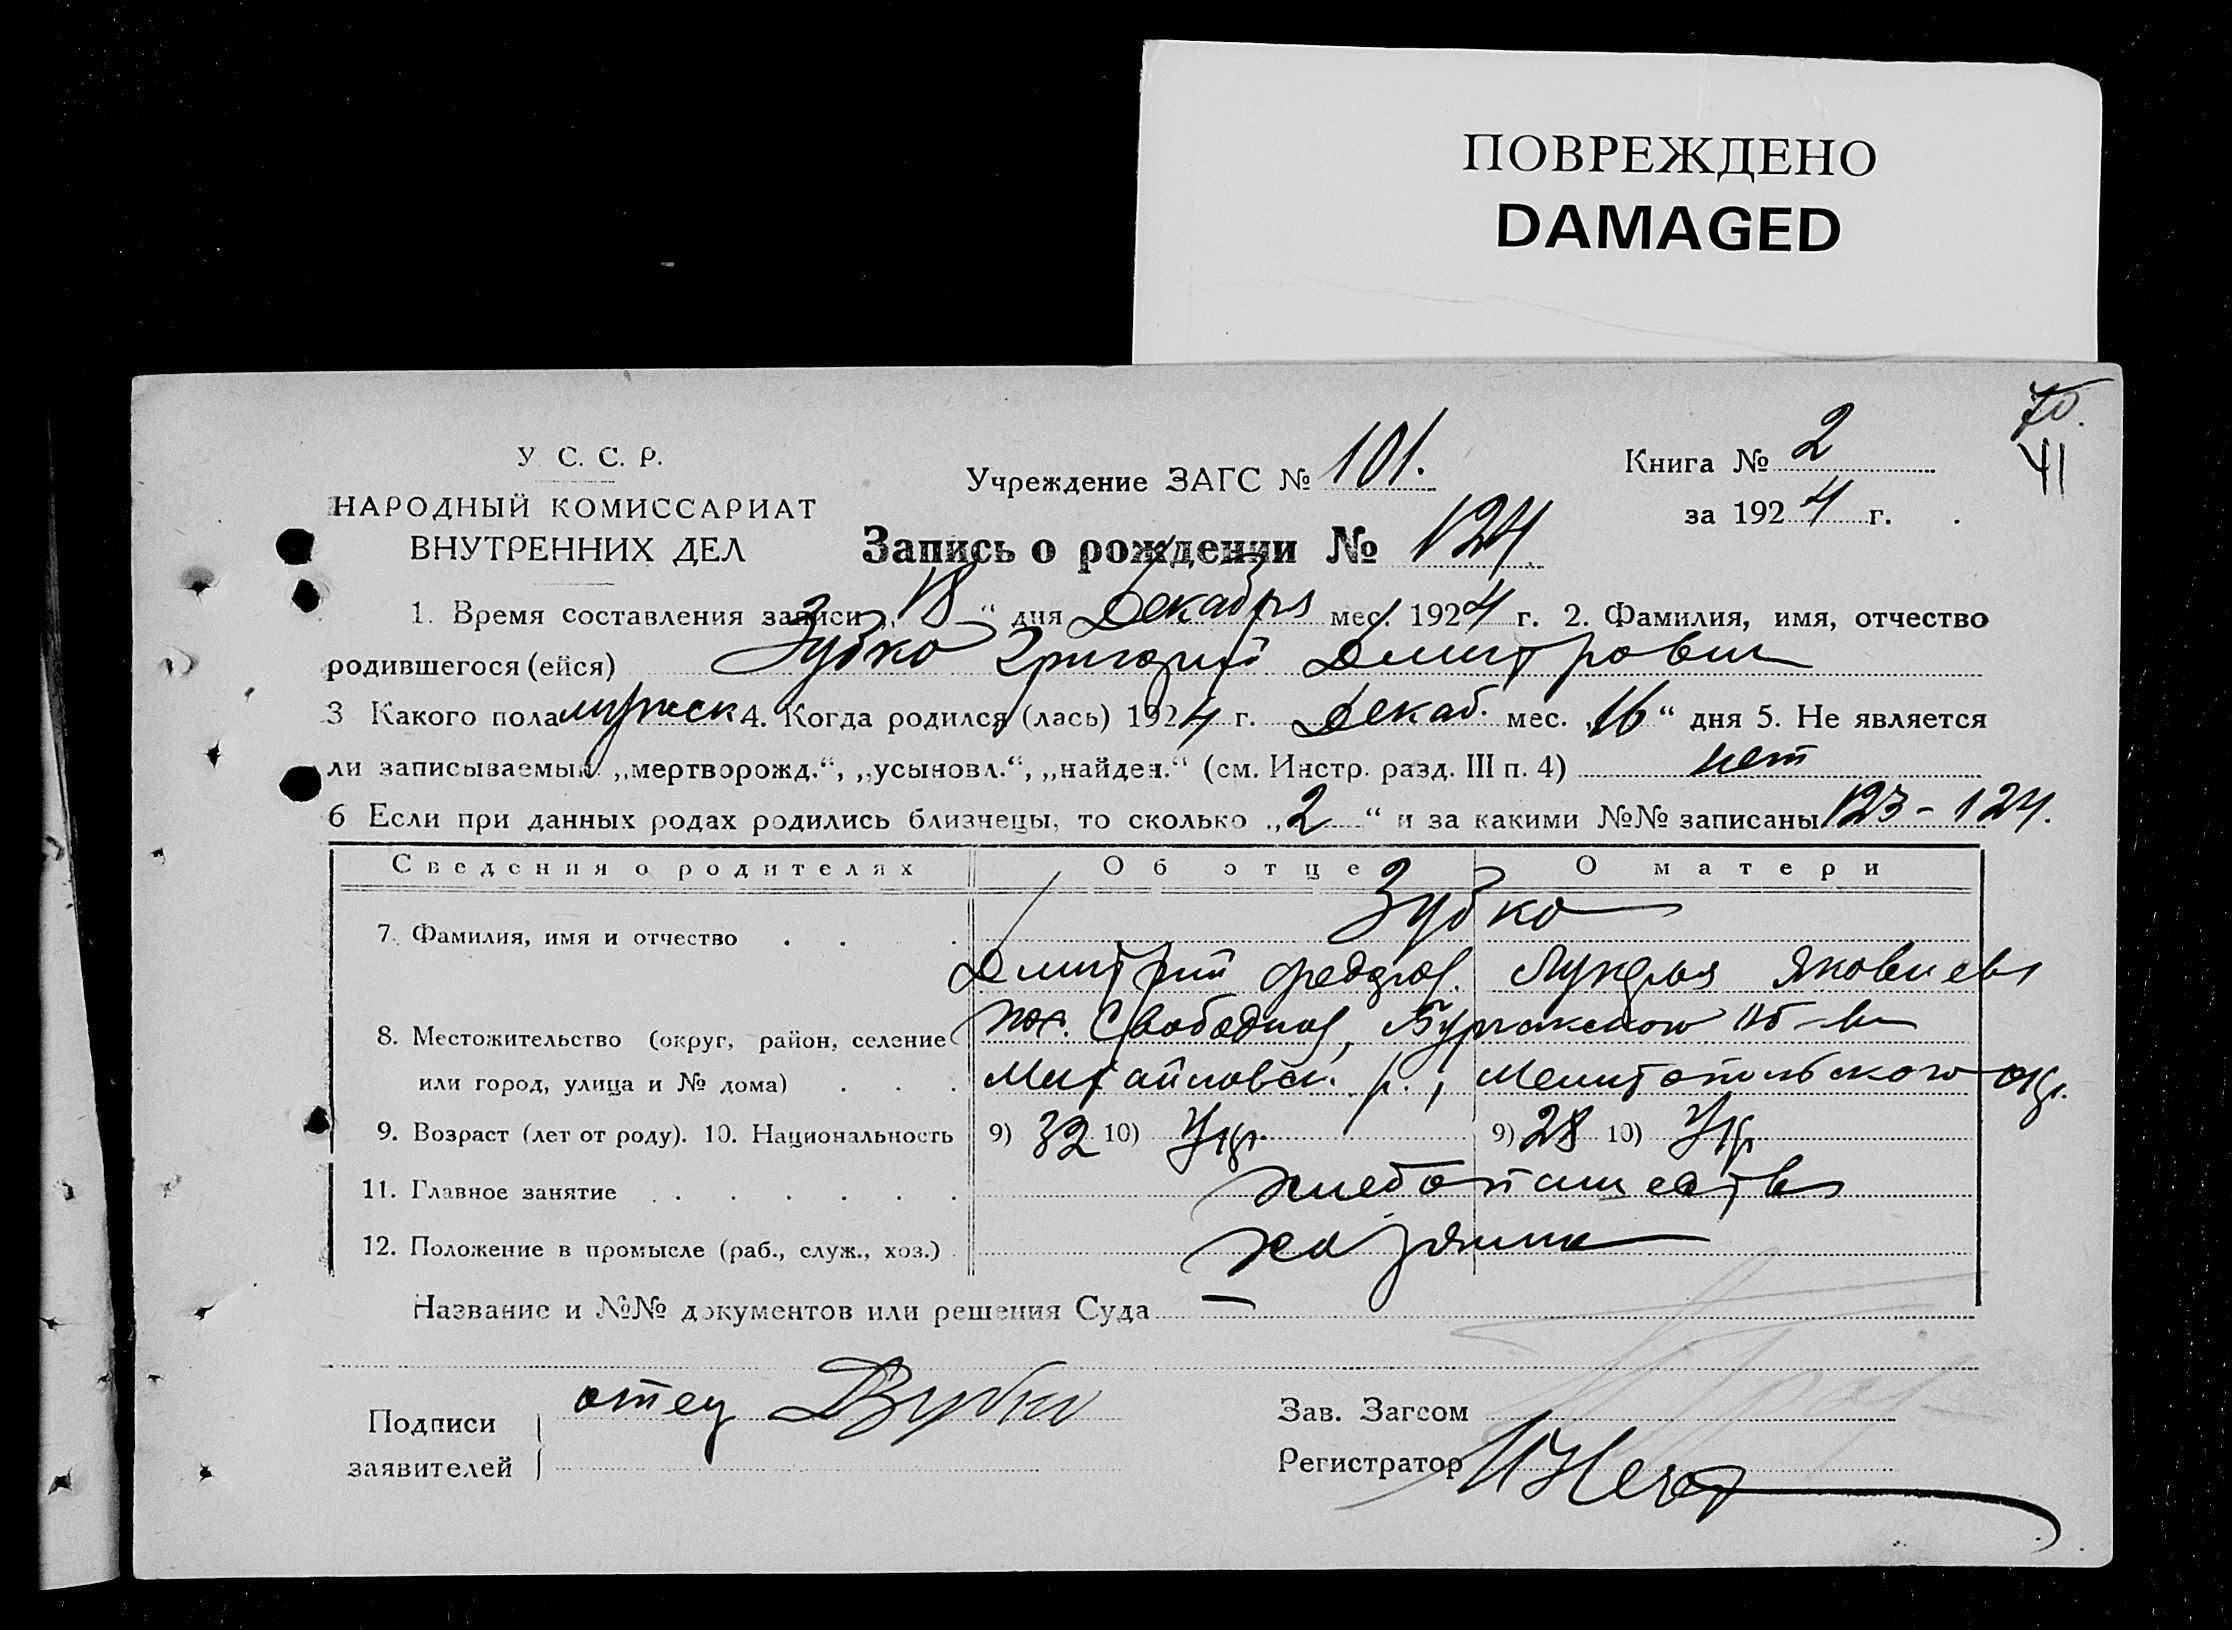 ПОВРЕЖДЕНО
DAMAGED
70.
41
У. С. С. Р.
НАРОДНЫЙ КОМИССАРИАТ
ВНУТРЕННИХ ДЕЛ
Учреждение ЗАГС № 101.
Книга № 2
за 1924 г.
Запись о рождении № 124
1. Время составления записи „18“ дня Декабря мес. 1924 г. 2. Фамилия, имя, отчество
родившегося (ейся) Зубко Григорий Дмитрович
3 Какого пола мужск 4. Когда родился (лась) 1924 г. Декаб. мес. „16“ дня 5. Не является
ли записываемый „мертворожд.“, „усыновл.“, „найден.“ (см. Инстр. разд. III п. 4) нет
6 Если при данных родах родились близнецы, то сколько „2“ и за какими №№ записаны 123-124.
Сведения о родителях Об отце О матери
7. Фамилия, имя и отчество Зубко
Дмитрий Федоров. Лукерья Яковлева
8. Местожительство (округ, район, селение Свободная,
или город, улица и № дома) Михайловск. р., Мелитопольского окр.
9. Возраст (лет от роду). 10. Национальность 9) 32 10) Укр. 9) 28 10) Укр
11. Главное занятие хлебопашество
12. Положение в промысле (раб., служ., хоз.) хозяин
Название и №№ документов или решения Суда —
Подписи заявителей отец ДЗубко
Зав. Загсом
Регистратор